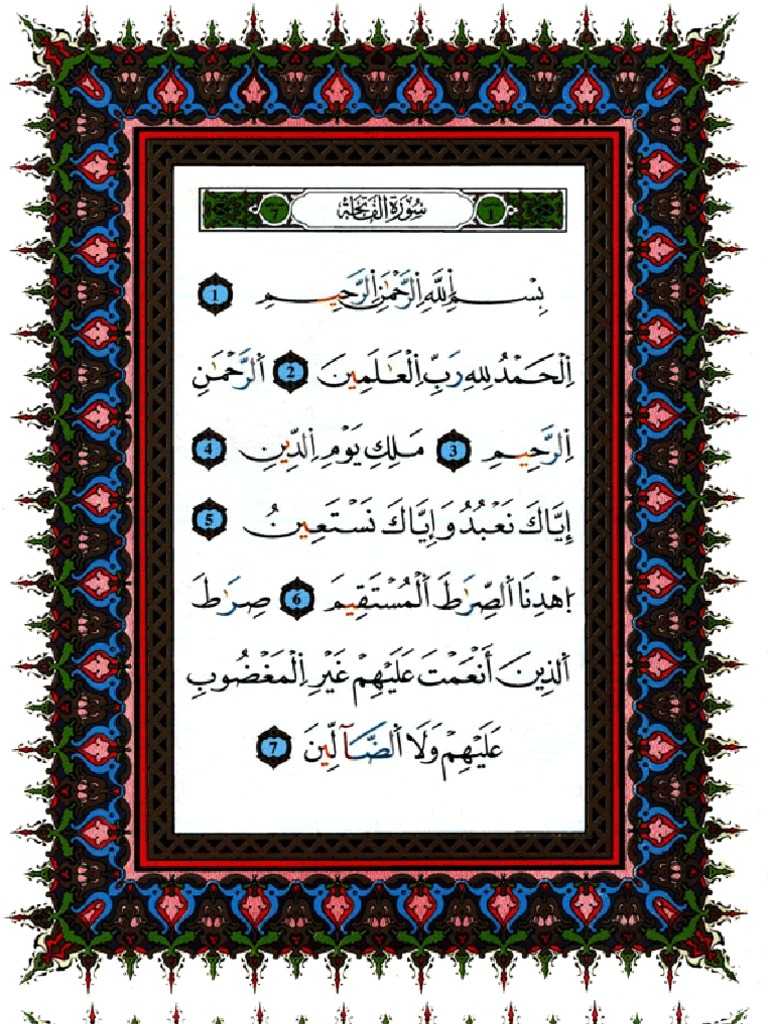 1 سُورَةُ الْفَاتِحَةِ 7
بِسْمِ اِ۬للَّهِ اِ۬لرَّحْمَٰنِ اِ۬لرَّحِيمِ 1
اِ۬لْحَمْدُ لِلهِ رَبِّ اِ۬لْعَٰلَمِينَ 2 اَ۬لرَّحْمَٰنِ
اِ۬لرَّحِيمِ 3 مَلِكِ يَوْمِ اِ۬لدِّينِ 4
إِيَّاكَ نَعْبُدُ وَإِيَّاكَ نَسْتَعِينُ 5
اِ۪هْدِنَا اَ۬لصِّرَٰطَ اَ۬لْمُسْتَقِيمَ 6 صِرَٰطَ
اَ۬لذِينَ أَنْعَمْتَ عَلَيْهِمْ غَيْرِ اِ۬لْمَغْضُوبِ
عَلَيْهِمْ وَلَا اَ۬لضَّآلِّينَ 7